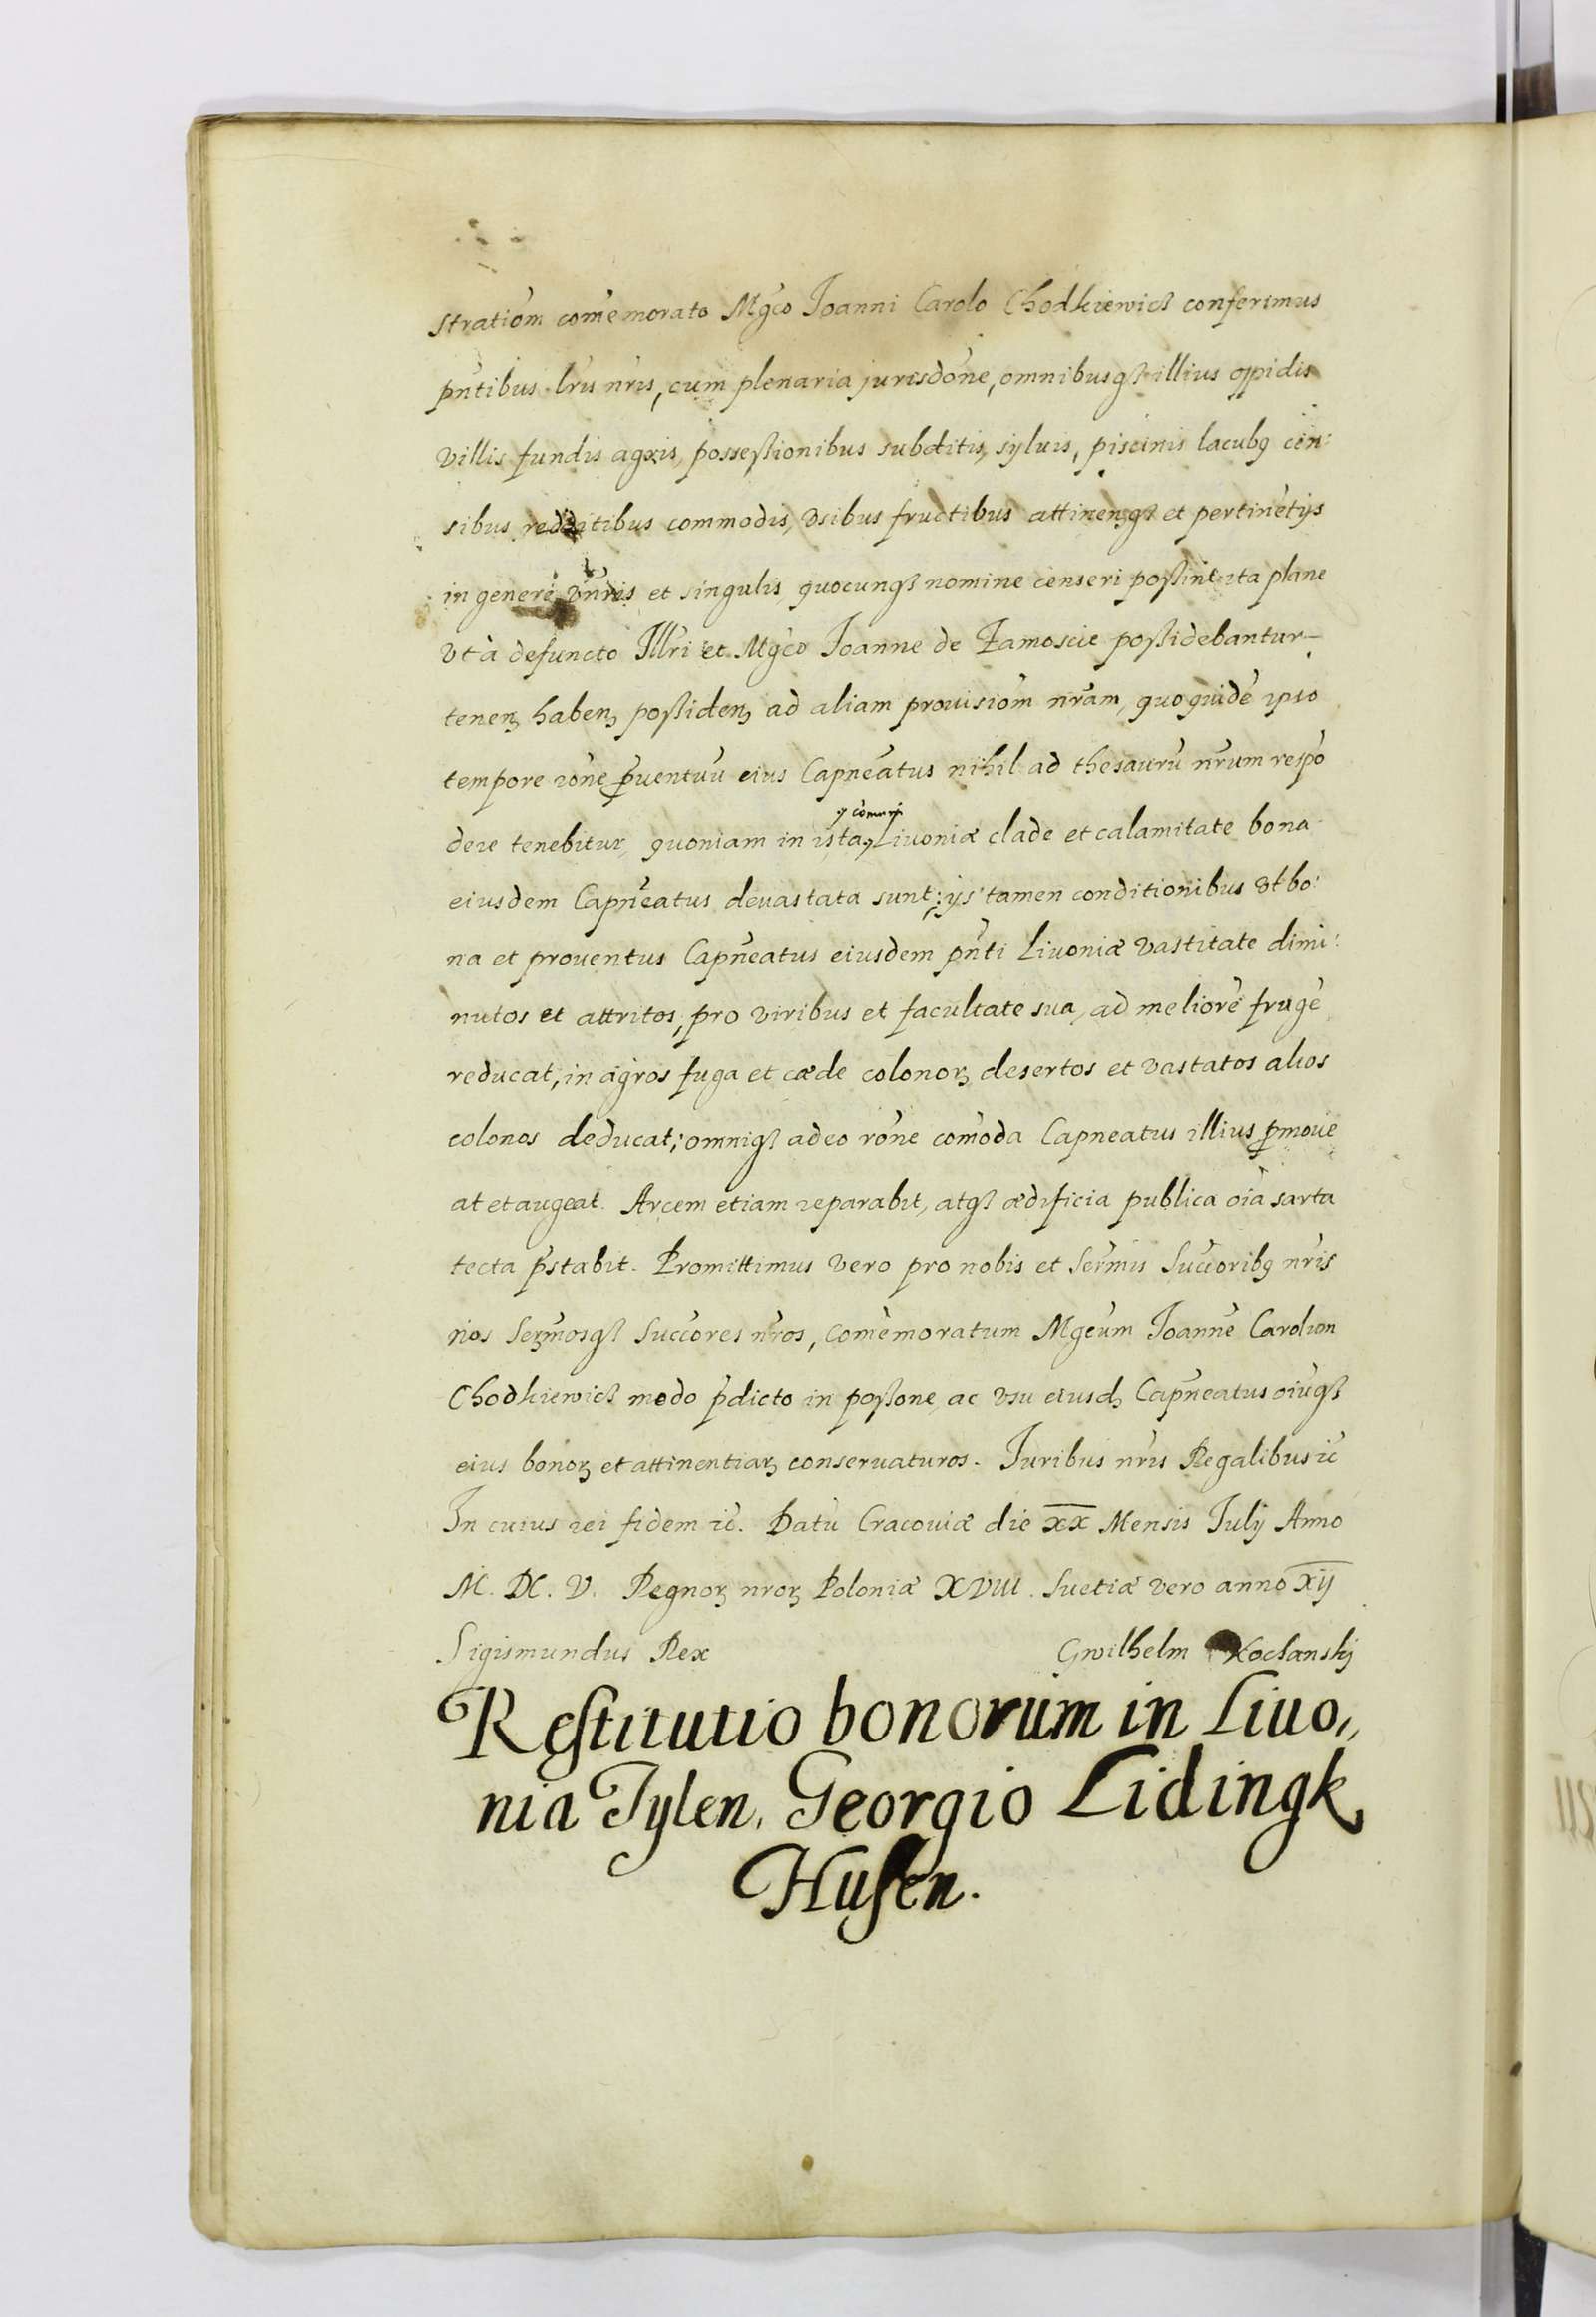 stratiom com̄emorato Mgc̄o Joanni Carolo Chodkiewicz conferimus
pn̄tibus lr̄is nr̄is, cum plenaria jurisdōne, omnibusqꝫ illius oppidis
villis fundis agris, possessionibus subditis, syluis, piscinis lacubꝯ cen:
sibus redditibus commodis, vsibus fructibus attinenꝫqꝫ et pertinētijs
in genere vnīūis et singulis, quocunqꝫ nomine censeri possint ita plane
vt à defuncto Illr̄i et Mgc̄o Joanne de Zamoscie possidebantur
tenenꝫ habenꝫ possidenꝫ ad aliam prouisiom̄ nr̄am, quo quidē ipso
tempore rōne ꝓuentuū eius Capn̄eatus nihil ad thesaurū nr̄um respō
dere tenebitur, quoniam in ista Liuoniæ clade et calamitate bona
eiusdem Capn̄eatus deuastata sunt; ijs tamen conditionibus vt bo:
na et prouentus Capn̄eatus eiusdem pn̄ti Liuoniæ vastitate dimi:
nutos et attritos, pro viribus et facultate sua, ad meliorē frugē
reducat, in agros fuga et cæde colonorꝫ desertos et vastatos alios
colonos deducat; omniqꝫ adeo rōne com̄oda Capneatus illius ꝓmoue
at et augeat. Arcem etiam reparabit, atqꝫ ædificia publica oīa sarta
tecta p̄stabit. Promittimus vero pro nobis et Serm̄is Succōribꝯ nr̄is
nos Serm̄osqꝫ Succōres nr̄os, com̄emoratum Mgcūm Joannē Carolum
Chodkiewicz modo p̄dicto in possōne, ac vsu eiusdꝫ Capn̄eatus oīuqꝫ
eius bonorꝫ et attinentiarꝫ conseruaturos. Juribus nr̄is Regalibus ꝛc̄
In cuius rei fidem ꝛc̄. Datū Cracouiæ die xx Mensis Julij Anno
M. DC. V. Regnorꝫ nrorꝫ Poloniæ XVIII. Suetiæ vero anno xij
Sigismundus Rex Gwilhelm Kochanskij
Restitutio bonorum in Liuo,,
nia Tylen. Georgio Lidingk
Husen.